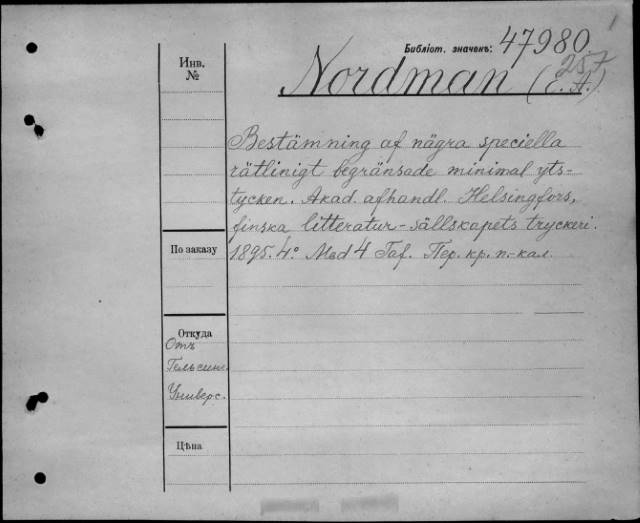 1
Библіот. значекъ: 47980
257
Инв.
№
Nordman (E. A.)
Bestämning af några speciella
rätlinigt begränsade minimal yts-
tycken. Akad. afhandl. Helsingfors,
finska litteratur-sällskapets tryckeri.
1895. 4º. Med 4 Taf. Пер. кр. п.-кал.
По заказу
Откуда
Отъ
Гельсинг.
Универс.
Цѣна